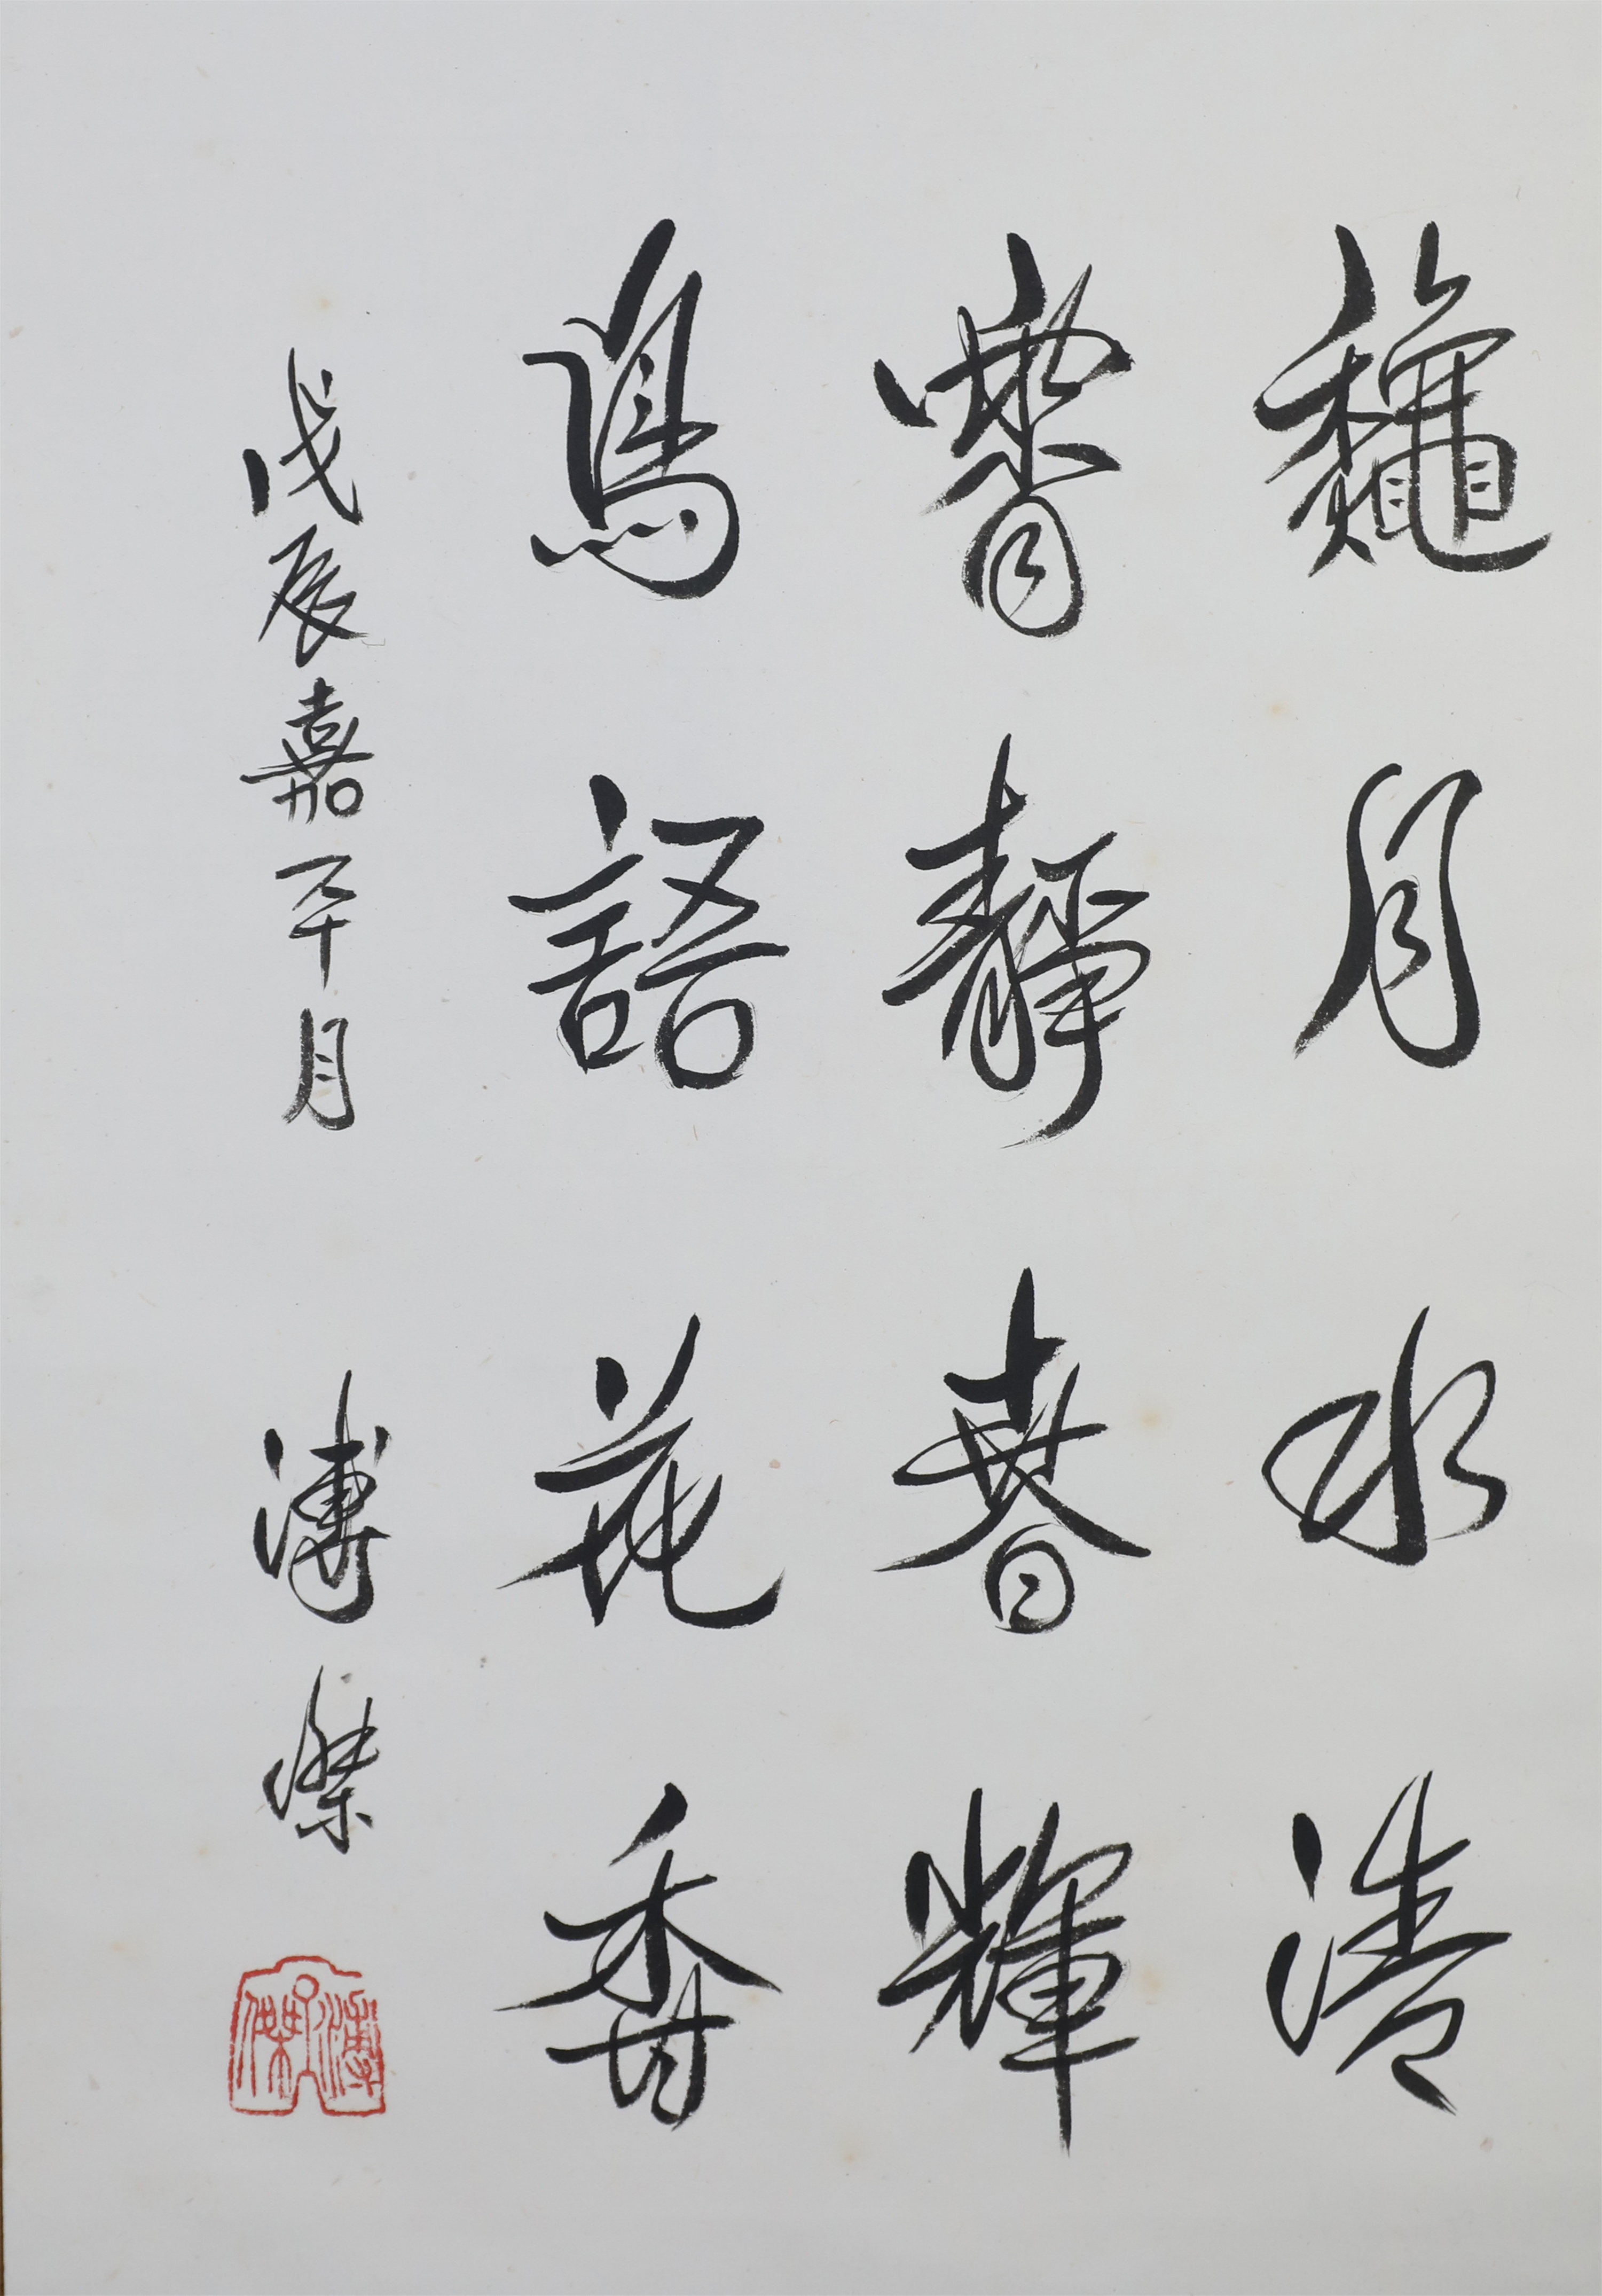 龝月水清
静春輝
鳥語花香
戊辰嘉平月 溥傑
溥傑